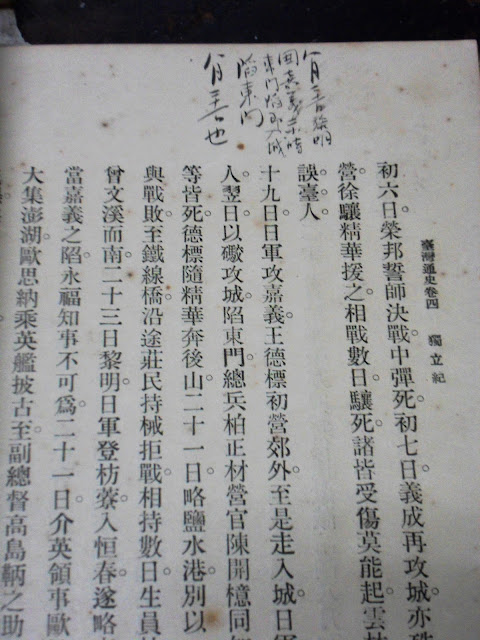 臺灣通史卷四　獨立紀
初六日。榮邦誓師決戰。中彈死。初七日。義成再攻城。亦
營。徐驤精華援之。相戰數日。驤死。諸皆受傷莫能起。雲林
誤臺人。
十九日。日軍攻嘉義。王德標初營郊外。至是走入城。日軍
人。翌日。以礮攻城。陷東門。總兵柏正材營官陳開檍同知
等皆死。德標隨精華奔後山。二十一日。略鹽水港。別以
與戰。敗至鐵線橋。沿途莊民持械拒戰。相持數日。生員
曾文溪而南。二十三日黎明。日軍登枋藔。入恒春。遂略
當嘉義之陷。永福知事不可爲。二十一日。介英領事歐
大集澎湖。歐思納乘英艦披古至。副總督高島鞆之助
東門
陷東門